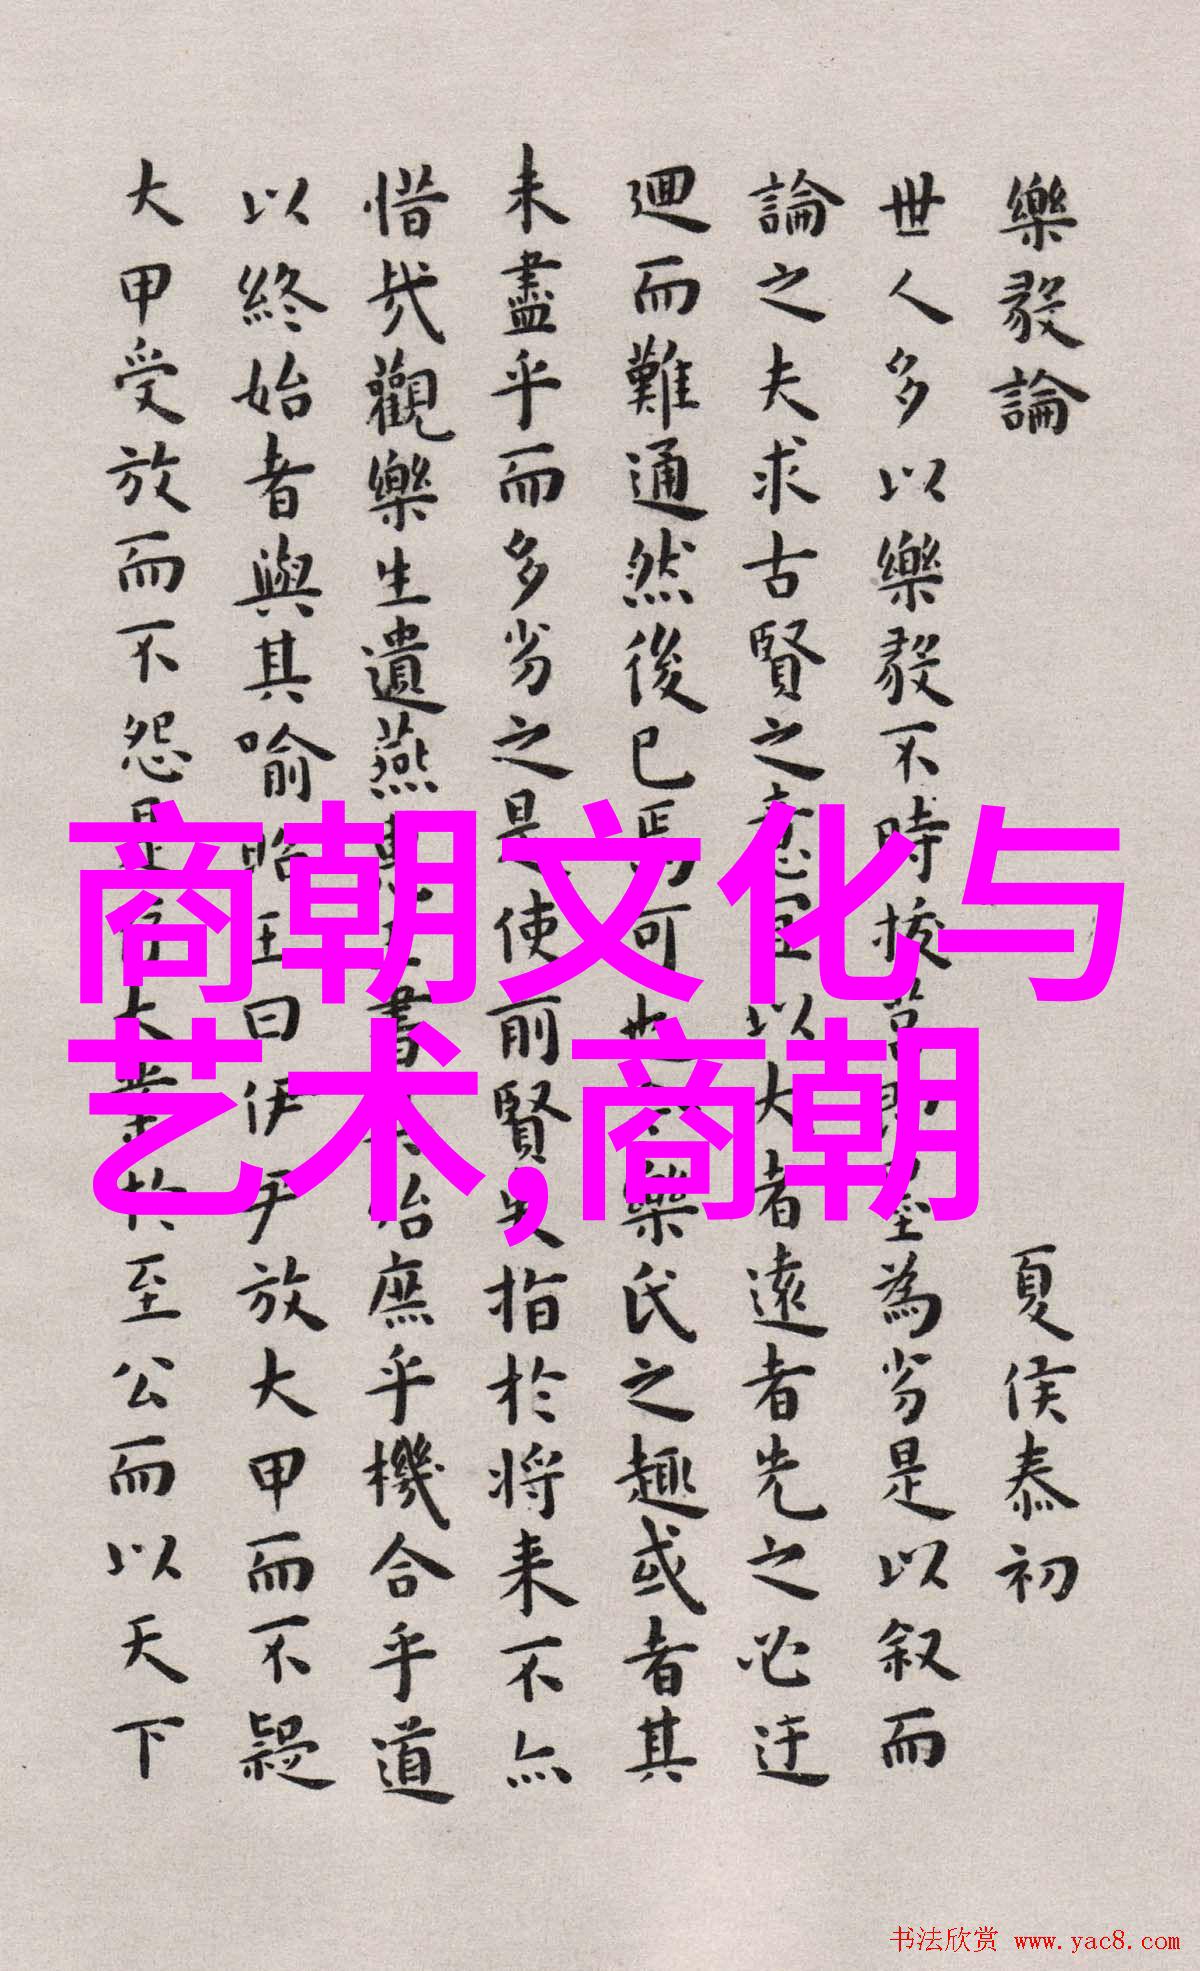 樂毅論
夏侯泰初
世人多以樂毅不時拔莒即墨為劣是以叙而
論之夫求古賢之意宜以大者遠者先之必迂
迴而難通然後已焉可也樂氏之趣或者其
未盡乎而多劣之是使前賢失指於將来不亦
惜哉觀樂生遺燕惠王書其殆庶乎機合乎道
以終始者與其喻昭王曰伊尹放大甲而不疑
大甲受放而不怨是存大業於至公而以天下
商朝文化与
艺术,商朝
书法欣赏 www.yac8.com